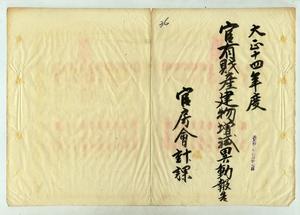 大正十四年度
官有財産建物増減異動報告
官房會計課
36